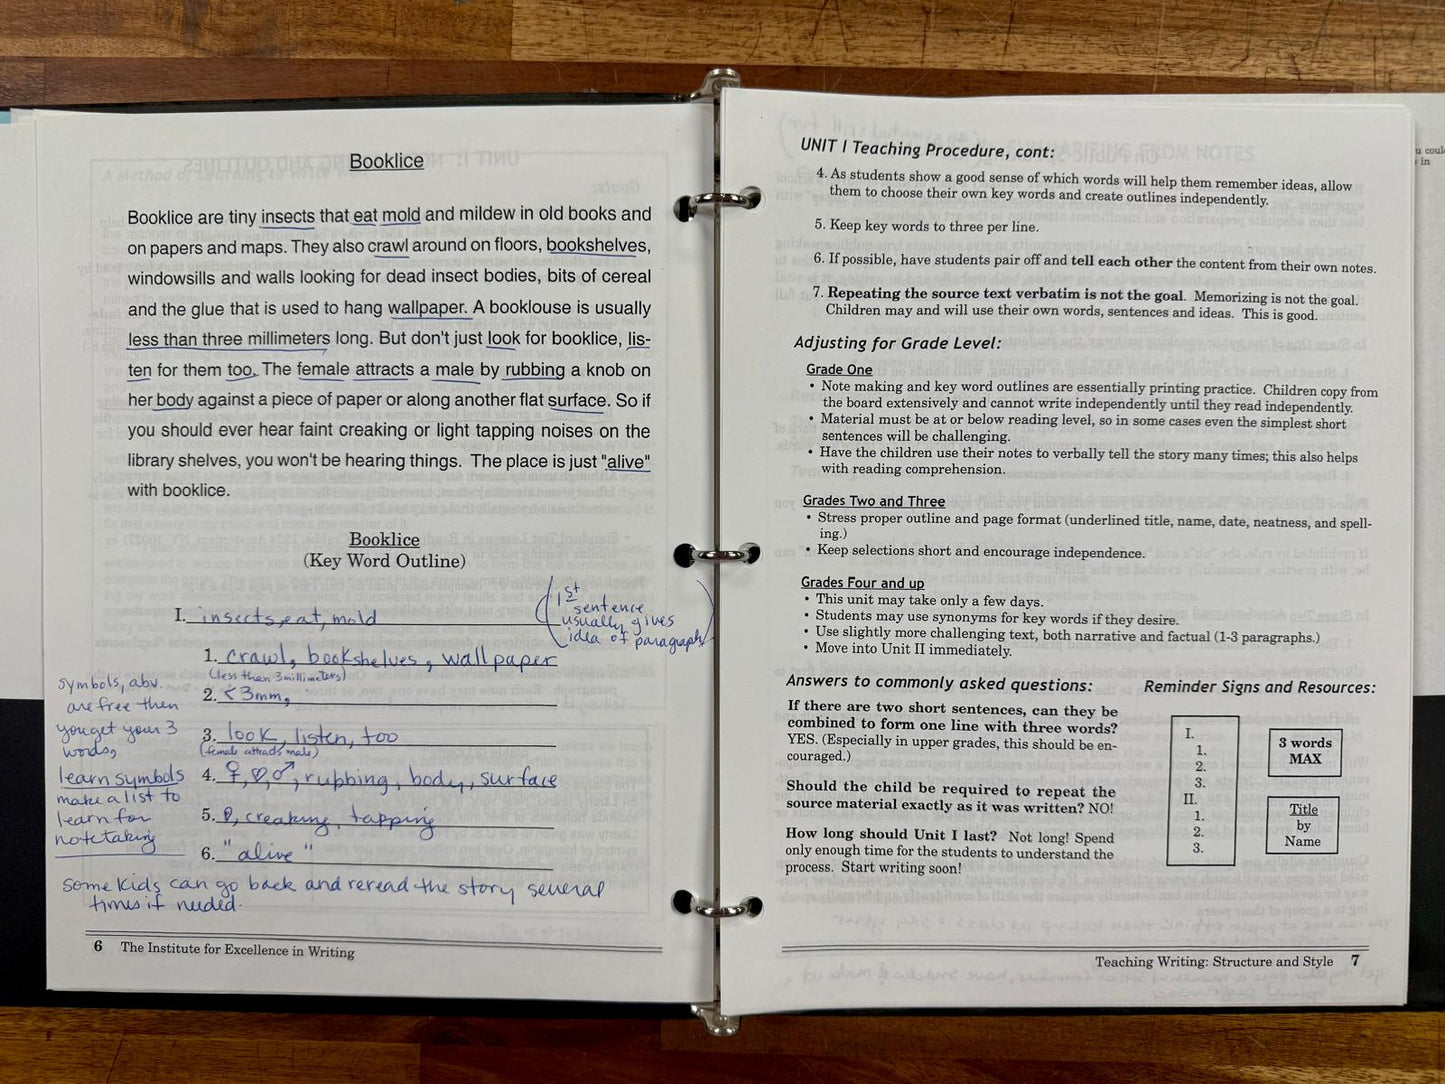 Booklice
Booklice are tiny insects that eat mold and mildew in old books and
on papers and maps. They also crawl around on floors, bookshelves,
windowsills and walls looking for dead insect bodies, bits of cereal
and the glue that is used to hang wallpaper. A booklouse is usually
less than three millimeters long. But don't just look for booklice, lis-
ten for them too. The female attracts a male by rubbing a knob on
her body against a piece of paper or along another flat surface. So if
you should ever hear faint creaking or light tapping noises on the
library shelves, you won't be hearing things. The place is just "alive"
with booklice.
Booklice
(Key Word Outline)
I. insects, eat, mold
(1st
sentence
usually gives
idea of paragraph)
1. crawl, bookshelves, wallpaper
(less than 3 millimeters)
2. <3mm,
3. look, listen, too
(female attracts male)
4. ♀, ♡, ♂, rubbing, body, surface
5. creaking, tapping
6. "alive"
symbols, abv.
are free then
you get your 3
words,
learn symbols
make a list to
learn for
notetaking
some kids can go back and reread the story several
times if needed.
6 The Institute for Excellence in Writing
UNIT I Teaching Procedure, cont:
4. As students show a good sense of which words will help them remember ideas, allow
them to choose their own key words and create outlines independently.
5. Keep key words to three per line.
6. If possible, have students pair off and tell each other the content from their own notes.
7. Repeating the source text verbatim is not the goal. Memorizing is not the goal.
Children may and will use their own words, sentences and ideas. This is good.
Adjusting for Grade Level:
Grade One
• Note making and key word outlines are essentially printing practice. Children copy from
the board extensively and cannot write independently until they read independently.
• Material must be at or below reading level, so in some cases even the simplest short
sentences will be challenging.
• Have the children use their notes to verbally tell the story many times; this also helps
with reading comprehension.
Grades Two and Three
• Stress proper outline and page format (underlined title, name, date, neatness, and spell-
ing.)
• Keep selections short and encourage independence.
Grades Four and up
• This unit may take only a few days.
• Students may use synonyms for key words if they desire.
• Use slightly more challenging text, both narrative and factual (1-3 paragraphs.)
• Move into Unit II immediately.
Answers to commonly asked questions:
If there are two short sentences, can they be
combined to form one line with three words?
YES. (Especially in upper grades, this should be en-
couraged.)
Should the child be required to repeat the
source material exactly as it was written? NO!
How long should Unit I last? Not long! Spend
only enough time for the students to understand the
process. Start writing soon!
Reminder Signs and Resources:
I.
1.
2.
3.
II.
1.
2.
3.
3 words
MAX
Title
by
Name
Teaching Writing: Structure and Style 7
u coul
in